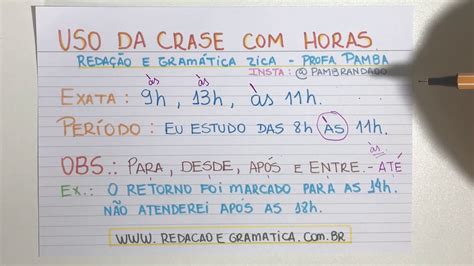 USO DA CRASE COM HORAS
REDAÇÃO E GRAMÁTICA ZICA - PROFA PAMBA
INSTA: @PAMBRANDAO
às às
EXATA: 9h, 13h, às 11h.
PERÍODO: EU ESTUDO DAS 8h ÀS 11h.
às
OBS.: PARA, DESDE, APÓS E ENTRE. - ATÉ
EX.: O RETORNO FOI MARCADO PARA AS 14h.
NÃO ATENDEREI APÓS AS 18h.
WWW.REDACAOEGRAMATICA.COM.BR